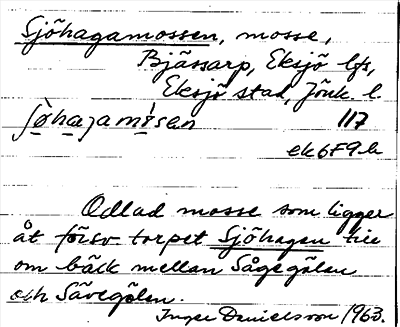 Sjöhagamossen, mosse,
Bjässarp, Eksjö lfs,
Eksjö stad, Jönk. l.
117
ek 6F9.h
Odlad mosse som ligger
åt försv. torpet Sjöhagen till
om bäck mellan Sågegölen
och Sävegölen.
Inger Danielsson 1963.